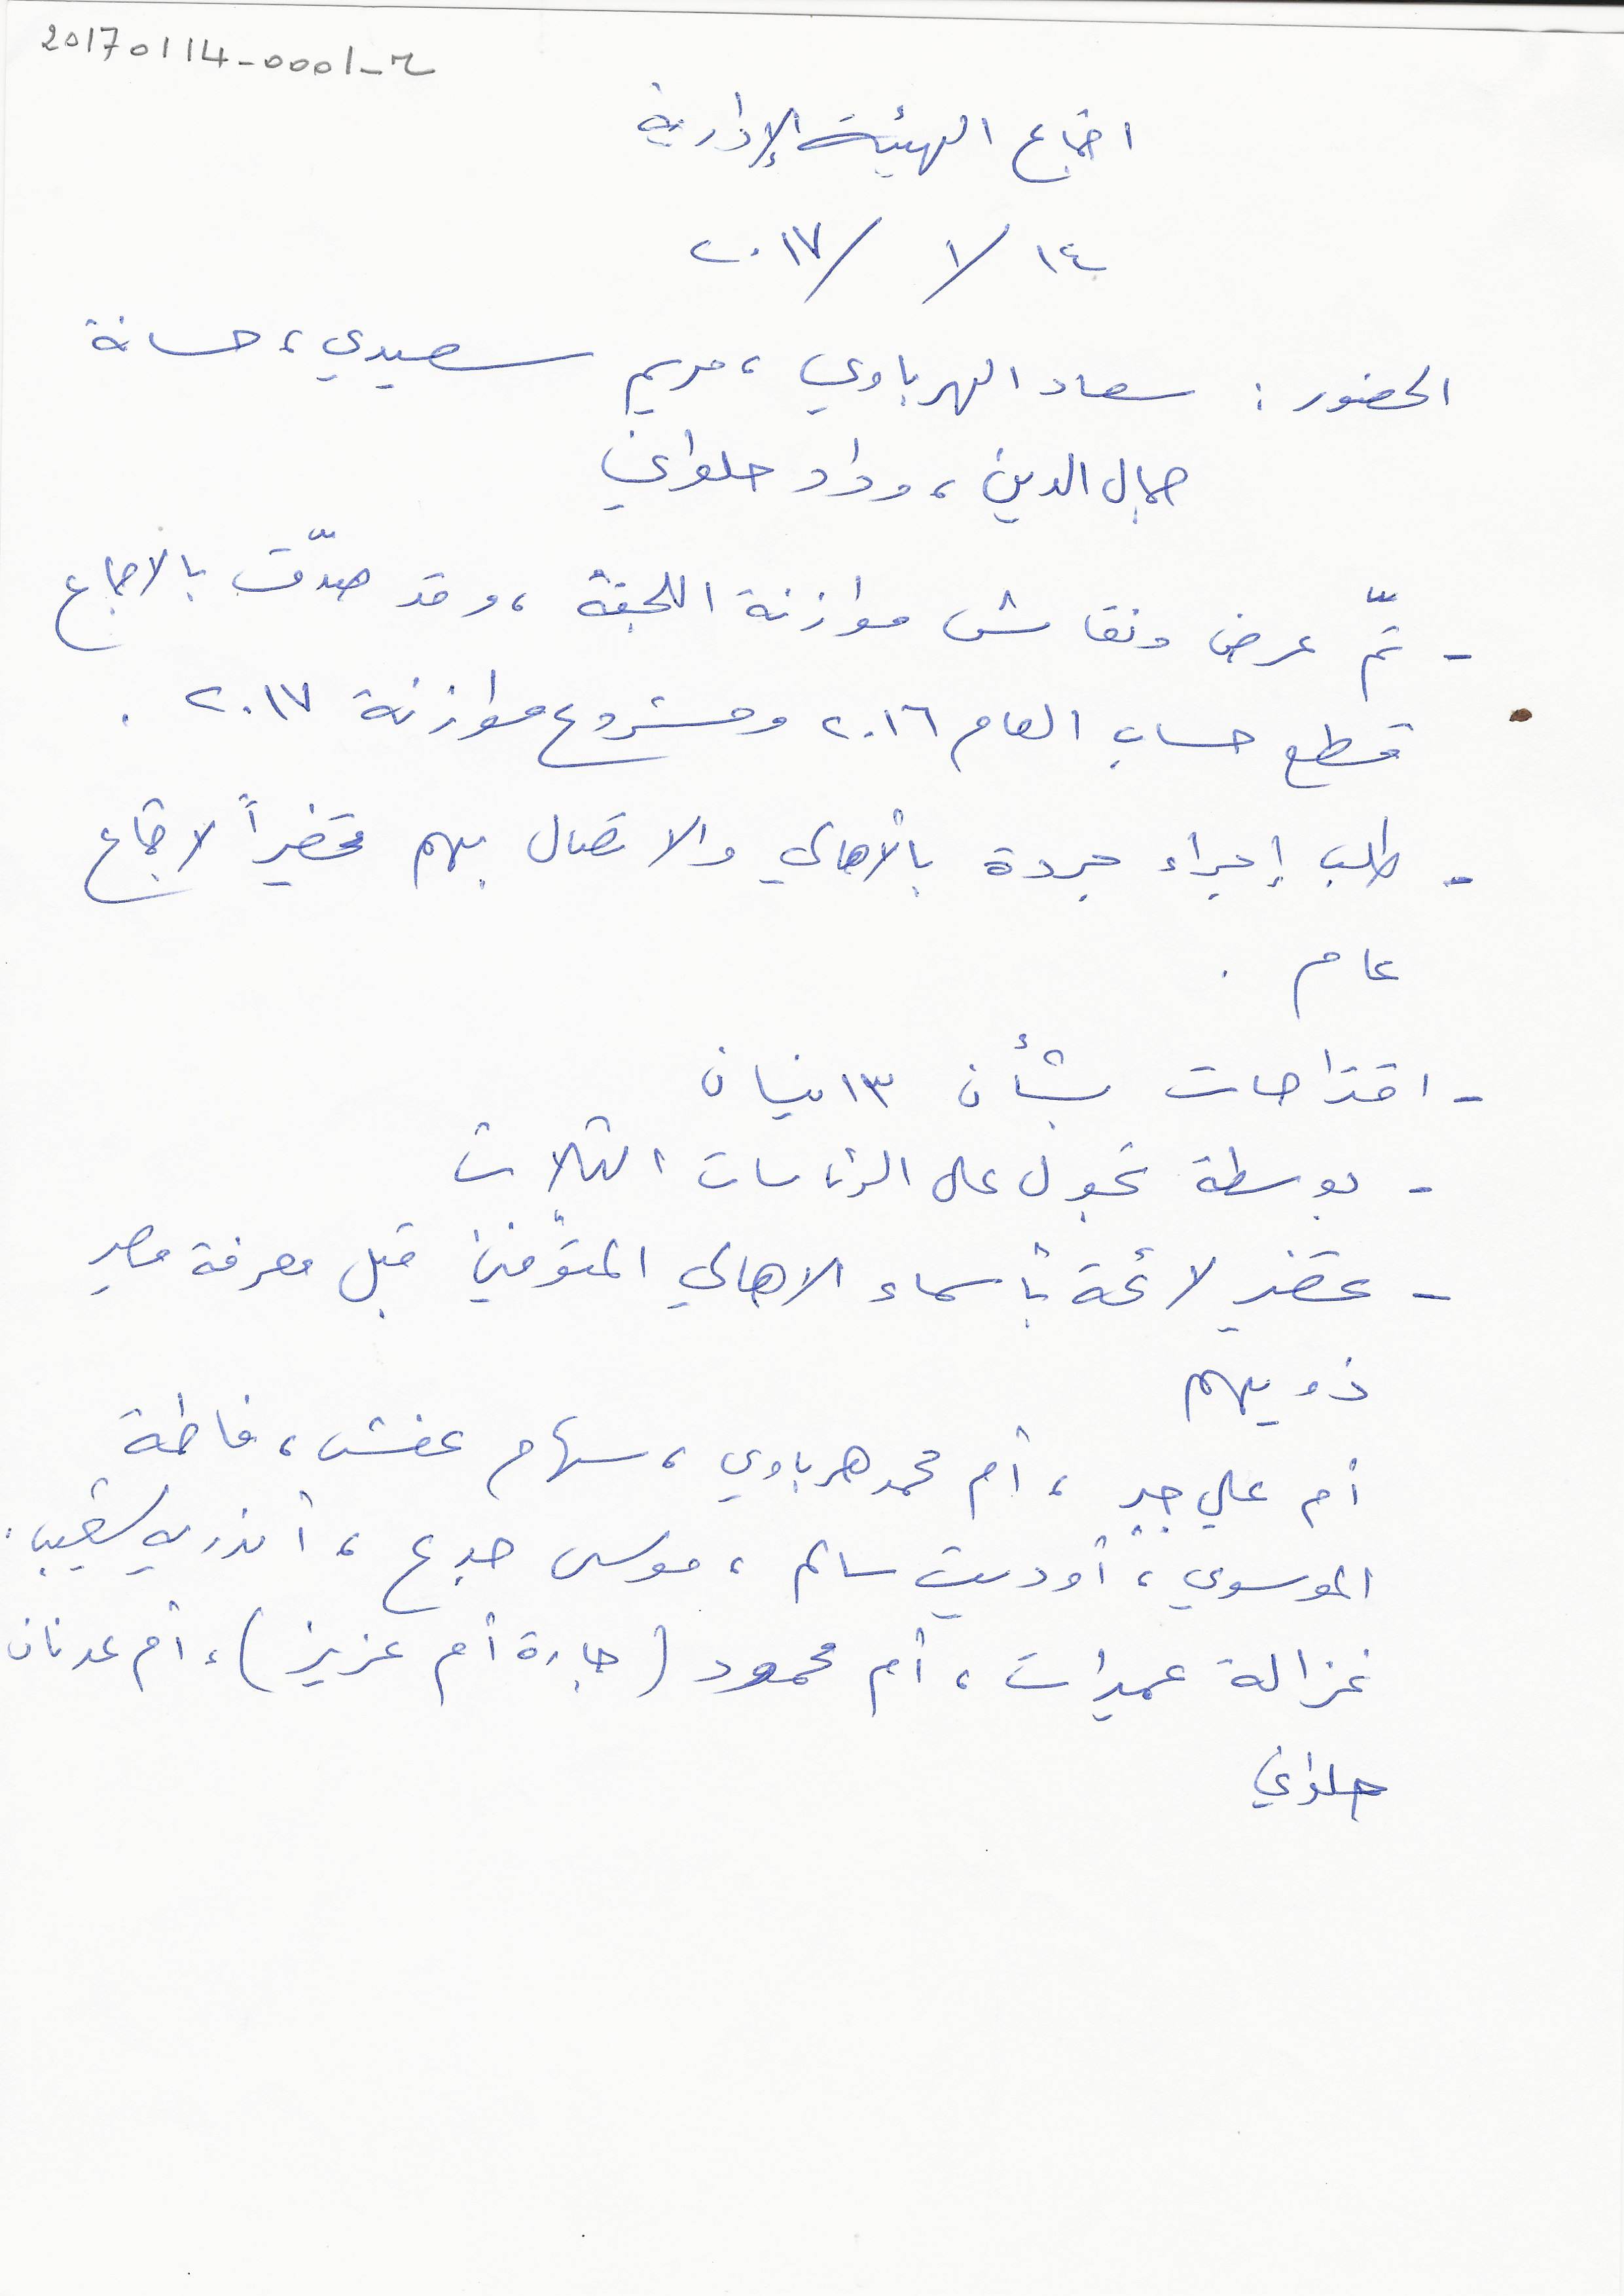 20170114-0001-2
اجتماع الهيئة الإدارية
١٤ / ١ / ٢٠١٧
الحضور : سعاد الهرباوي ، مريم سعيدي ، حسانة
جمال الدين ، وداد حلواني
- تمّ عرض ونقاش موازنة اللجنة ، وقد صدّقت بالاجماع
قطع حساب العام ٢٠١٦ ومشروع موازنة ٢٠١٧ .
- طلب إجراء جردة بالأهالي والاتصال بهم تحضيراً لاجتماع
عام .
- اقتراحات بشأن ١٣ نيسان
- بوسطة تجول على الرئاسات الثلاث
- تحضير لائحة بأسماء الاهالي المتوّفين قبل معرفة مصير
ذويهم
أم علي جبر ، أم محمد هرباوي ، سهام عفش ، فاطمة
الموسوي ، أوديت سالم ، موسى جدع ، أندريه شعيب ،
غزالة عميرات ، أم محمود ( جارة أم عزيز ) ، أم عدنان
حلواني